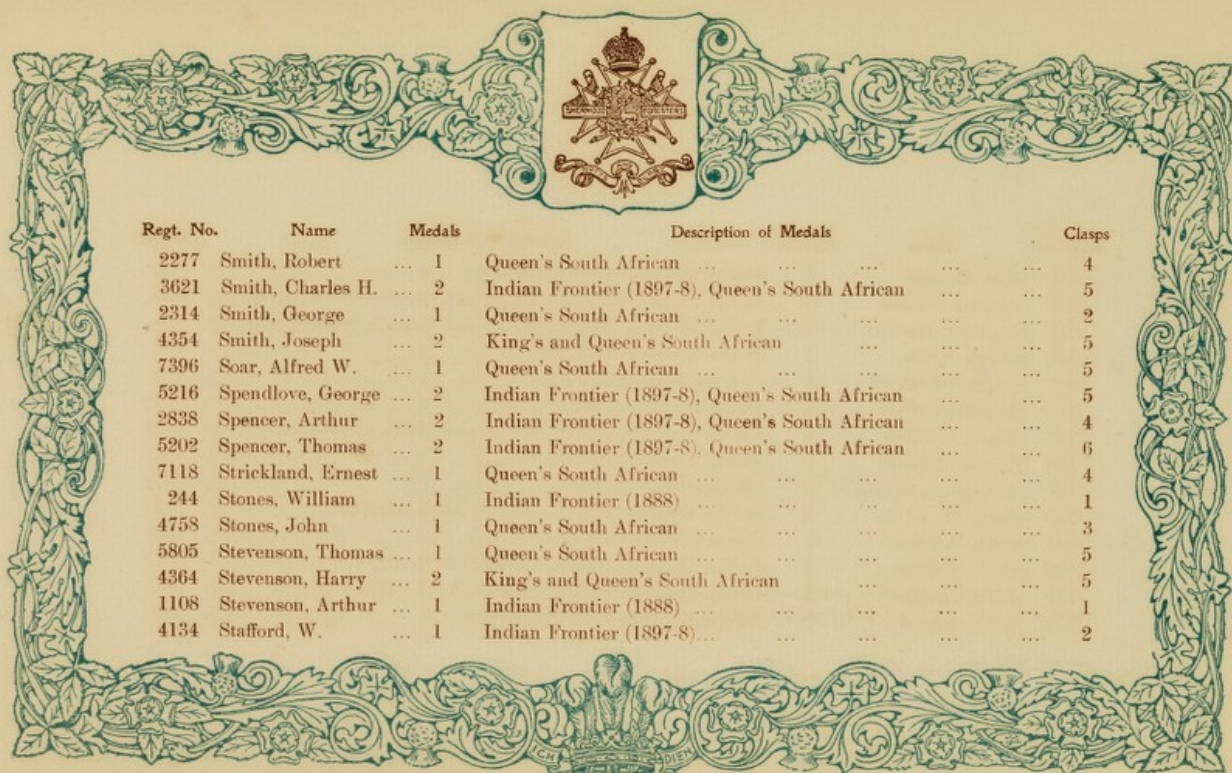 SHERWOOD FORESTERS
Regt. No. Name Medals Description of Medals Clasps
2277 Smith, Robert ... 1 Queen's South African ... ... ... ... ... 4
3621 Smith, Charles H. ... 2 Indian Frontier (1897-8), Queen's South African ... ... 5
2314 Smith, George ... 1 Queen's South African ... ... ... ... ... 2
4354 Smith, Joseph ... 2 King's and Queen's South African ... ... ... 5
7396 Soar, Alfred W. ... 1 Queen's South African ... ... ... ... ... 5
5216 Spendlove, George ... 2 Indian Frontier (1897-8), Queen's South African ... ... 5
2838 Spencer, Arthur ... 2 Indian Frontier (1897-8), Queen's South African ... ... 4
5202 Spencer, Thomas ... 2 Indian Frontier (1897-8), Queen's South African ... ... 6
7118 Strickland, Ernest ... 1 Queen's South African ... ... ... ... ... 4
244 Stones, William ... 1 Indian Frontier (1888) ... ... ... ... ... 1
4758 Stones, John ... 1 Queen's South African ... ... ... ... ... 3
5805 Stevenson, Thomas ... 1 Queen's South African ... ... ... ... ... 5
4364 Stevenson, Harry ... 2 King's and Queen's South African ... ... ... 5
1108 Stevenson, Arthur ... 1 Indian Frontier (1888) ... ... ... ... ... 1
4134 Stafford, W. ... 1 Indian Frontier (1897-8)... ... ... ... ... 2
ICH DIEN